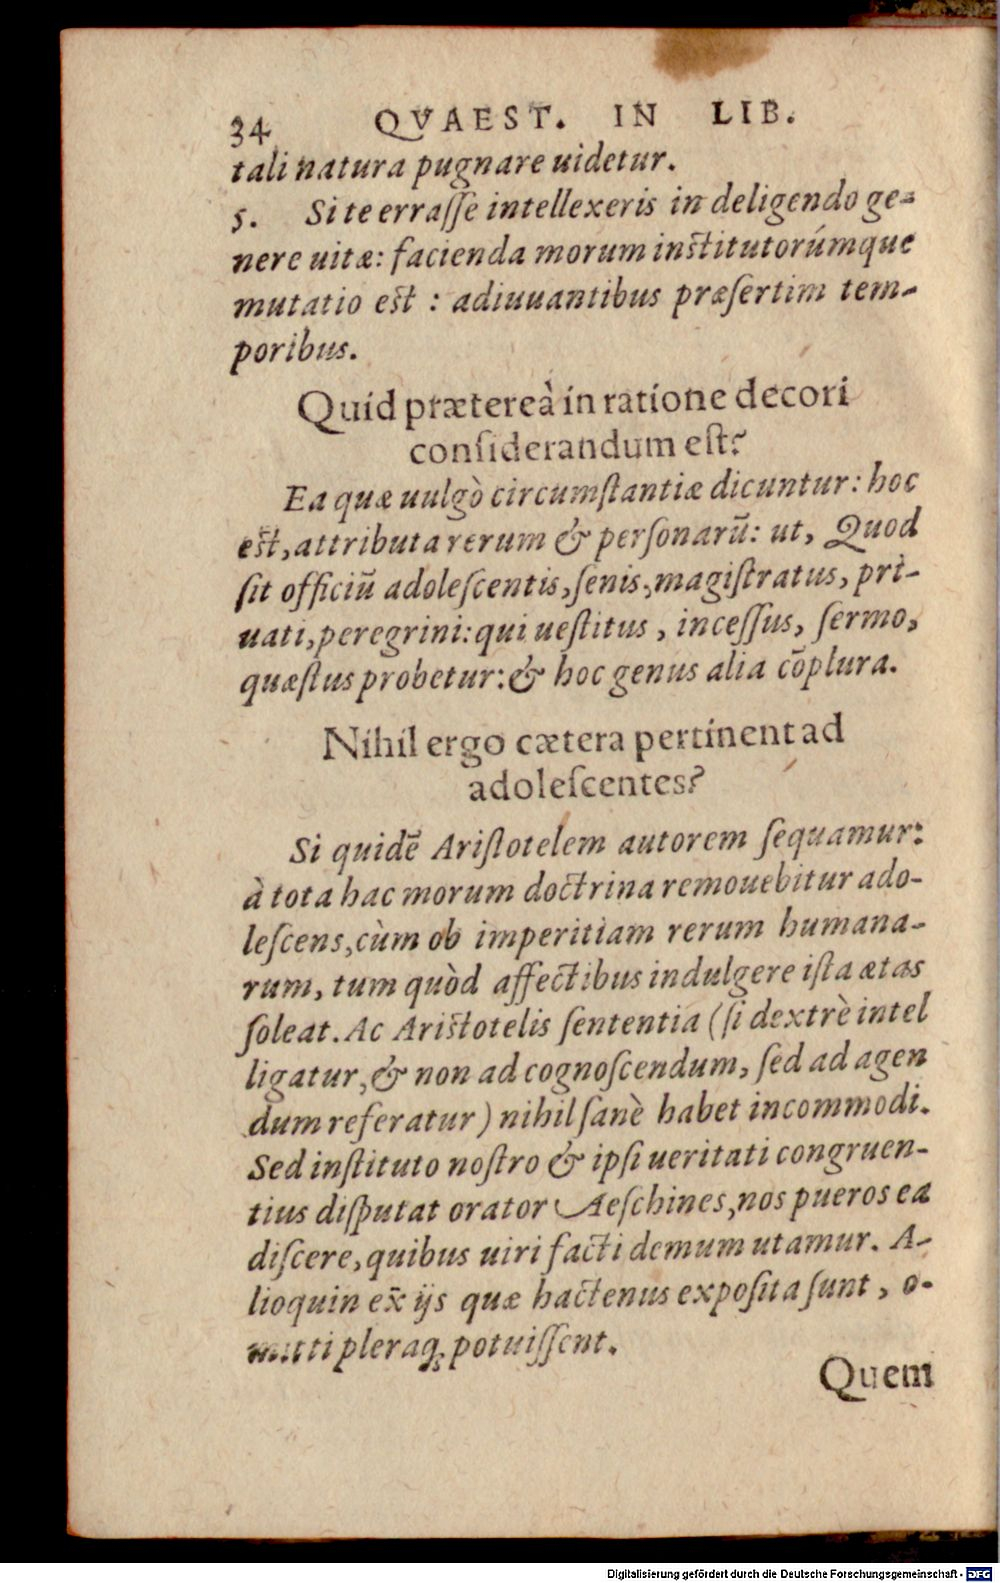 34 QVAEST. IN LIB.
tali natura pugnare uidetur.
5. Si te erraſſe intellexeris in deligendo ge-
nere uitæ: facienda morum inſtitutorúmque
mutatio eſt : adiuuantibus præſertim tem-
poribus.
Quid prætereà in ratione decori
conſiderandum eſt?
Ea quæ uulgò circumſtantiæ dicuntur: hoc
eſt, attributa rerum & perſonarū: ut, Quod
ſit officiū adoleſcentis, ſenis, magiſtratus, pri-
uati, peregrini: qui ueſtitus, inceſſus, ſermo,
quæſtus probetur: & hoc genus alia cōplura.
Nihil ergo cætera pertinent ad
adoleſcentes?
Si quidē Ariſtotelem autorem ſequamur:
à tota hac morum doctrina remouebitur ado-
leſcens, cùm ob imperitiam rerum humana-
rum, tum quòd affectibus indulgere iſta ætas
ſoleat. Ac Ariſtotelis ſententia (ſi dextrè intel
ligatur, & non ad cognoſcendum, ſed ad agen
dum referatur) nihil ſanè habet incommodi.
Sed inſtituto noſtro & ipſi ueritati congruen-
tius diſputat orator Aeſchines, nos pueros ea
diſcere, quibus uiri facti demum utamur. A-
lioquin ex̄ ijs quæ hactenus expoſita ſunt, o-
mitti pleraq; potuiſſent.
Quem
Digitalisierung gefördert durch die Deutsche Forschungsgemeinschaft - DFG